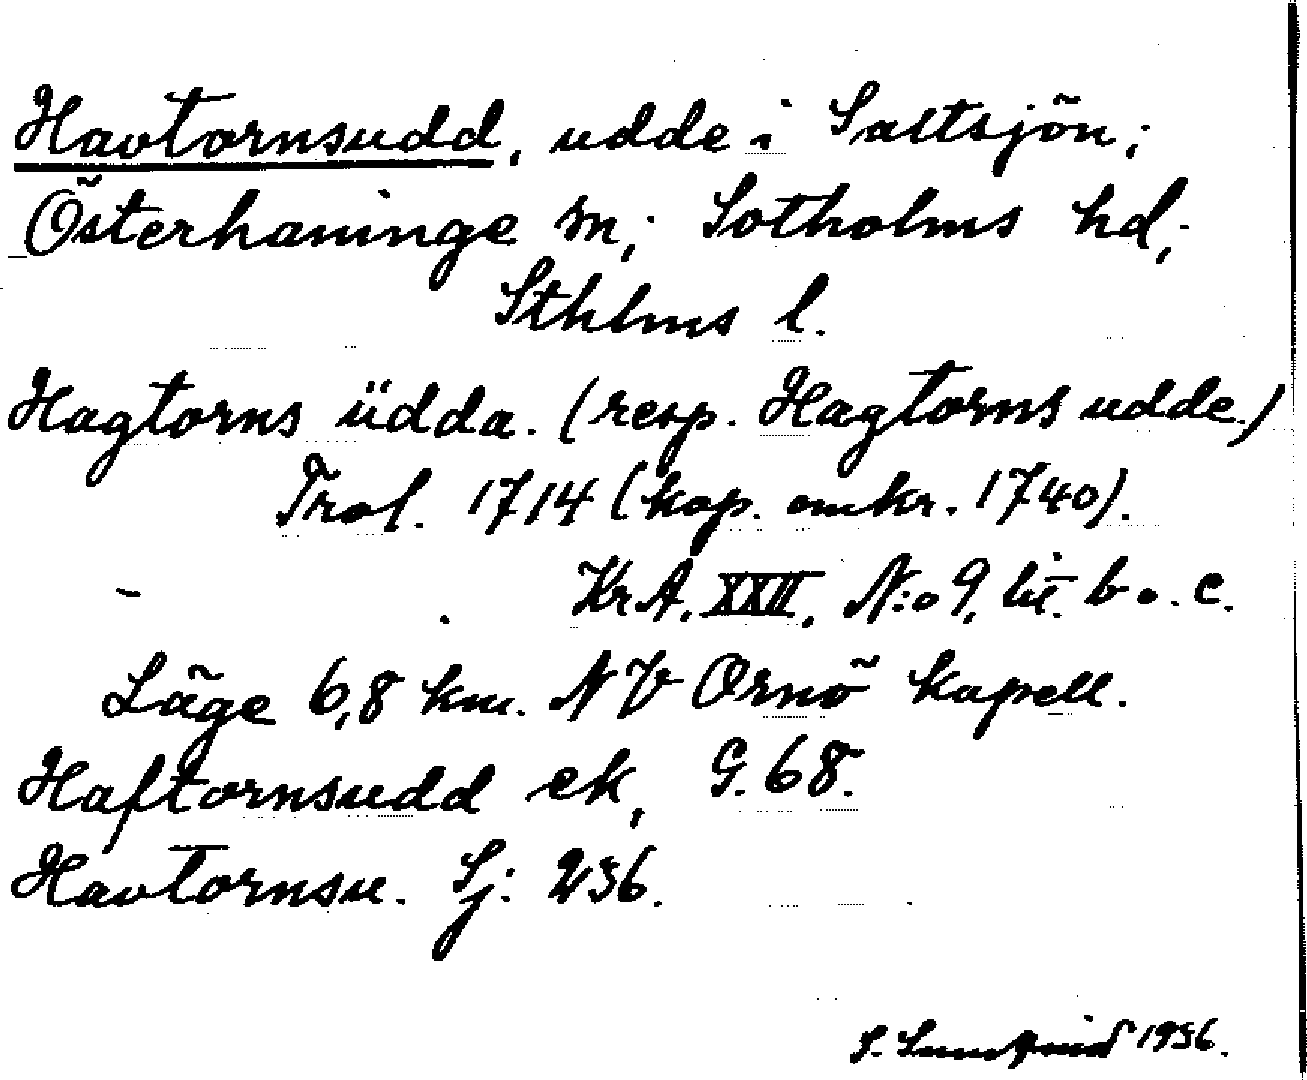 Havtornsudd, udde i Saltsjön;
Österhaninge sn; Sotholms hd,
Sthlms l.
Hagtorns üdda. (resp. Hagtorns udde.)
Trol. 1714 (kop. omkr. 1740).
KrA. XXII, N:o 9, lit. b o. c.
Läge 6,8 km. NV Ornö kapell.
Haftornsudd ek, G. 68.
Havtornsu. Sj: 236.
S. Sundqvist 1936.